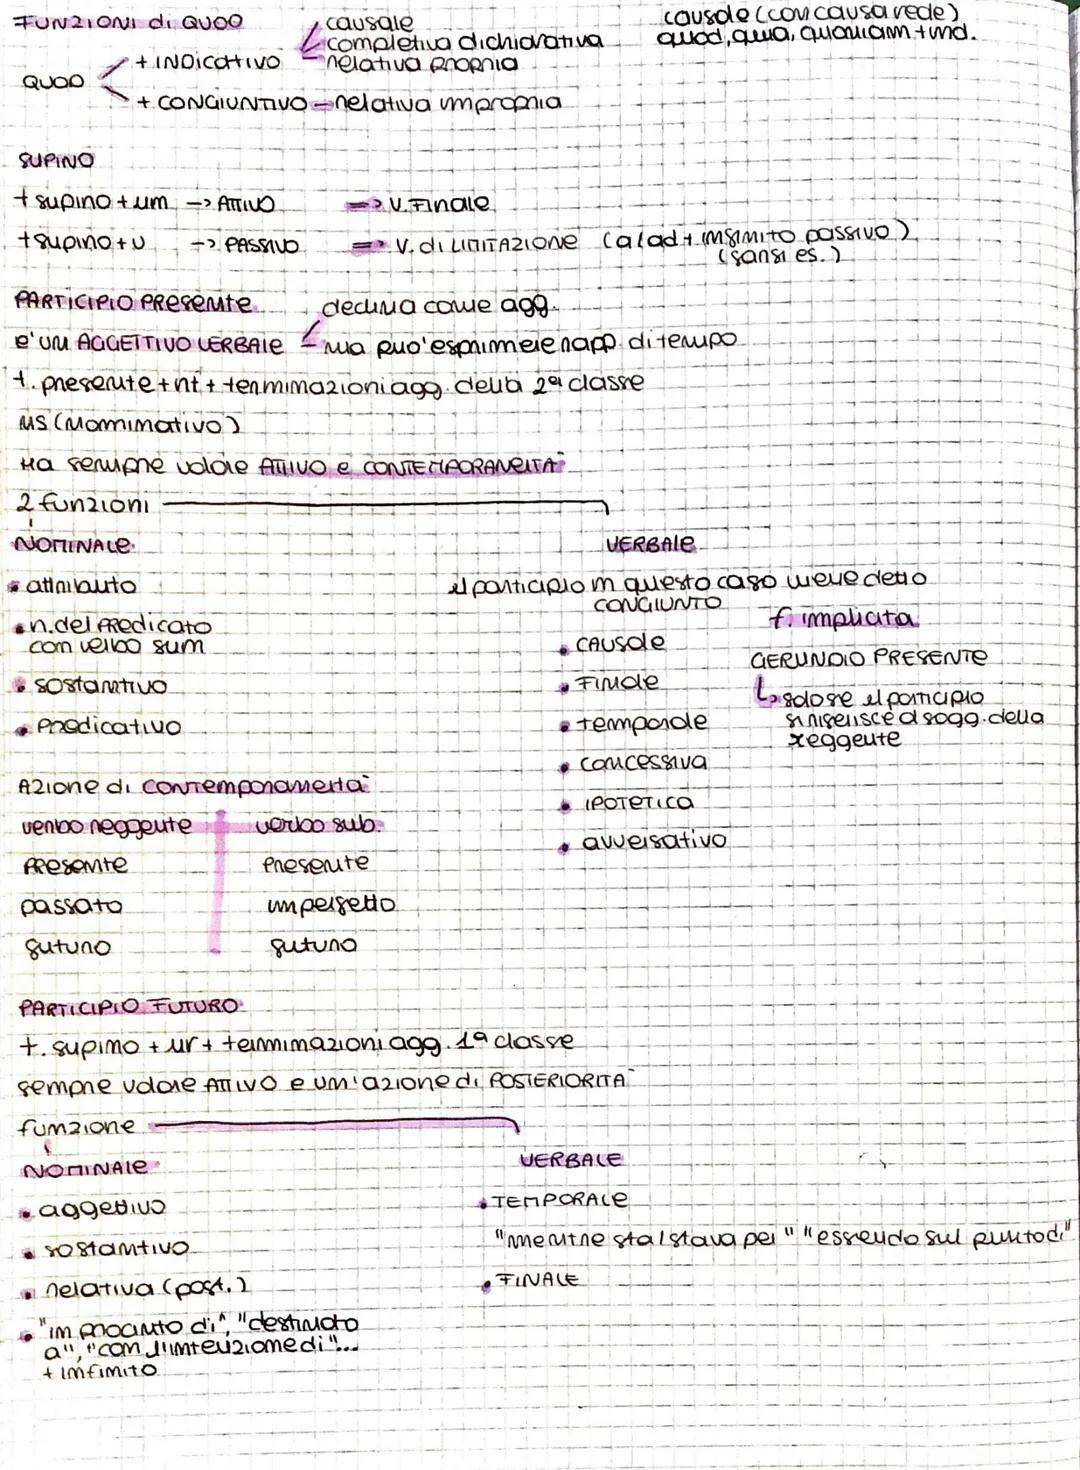 FUNZIONI di QUOD
causale
completiva dichiarativa
relativa propria
causale (con causa rede)
quod, quia, quoniam + ind.
QUOD
+ INDICATIVO
+ CONGIUNTIVO - relativa impropria
SUPINO
t supino + um -> ATTIVO => V. Finale
t supino + u -> PASSIVO => V. di LIMITAZIONE (a/ad + infinito passivo)
(sansi es.)
PARTICIPIO PRESENTE
declina come agg.
e' UN AGGETTIVO VERBALE
ma puo' esprimere rapp. di tempo
t. presente + nt + terminazioni agg. della 2ª classe
NS (Nominativo)
Ha sempre valore ATTIVO e CONTEMPORANEITA'
2 funzioni
NOMINALE
• attributo
• n. del PRedicato
con verbo sum
• sostantivo
• PRedicativo
VERBALE
il participio in questo caso viene detto
CONGIUNTO
• CAUSale
• Finale
• temporale
• concessiva
• IPOTETICA
• avversativo
f. implicita
GERUNDIO PRESENTE
↳ solo se il participio
si riferisce al sogg. della
reggente
AZIONE di CONTEMPORANEITA'
verbo reggente verbo sub.
PResente presente
passato imperfetto
futuro futuro
PARTICIPIO FUTURO
t. supino + ur + terminazioni agg. 1ª classe
sempre valore ATTIVO e un'azione di POSTERIORITA'
funzione
NOMINALE
• aggettivo
• sostantivo
• relativa (post.)
• "in procinto di", "destinato
a", "con l'intenzione di"...
+ infinito
VERBALE
• TEMPORALE
"mentre sta/stava per" "essendo sul punto di"
• FINALE